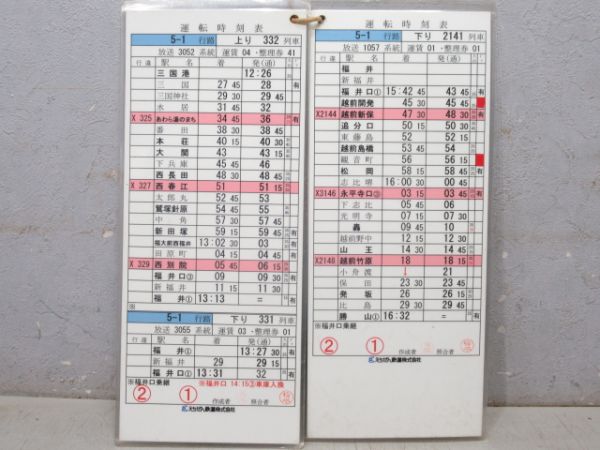 運転時刻表
5-1 行路 上り 332 列車
放送 3052 系統 運賃 04 ・整理券 41
行違 駅名 着 発(通)
三国港 12:26
三国 27 45 28 有
三国神社 29 30 29 45
水居 31 32
X 325 あわら湯のまち 34 45 36 有
番田 38 30 38 45
本荘 40 15 40 30
大関 43 43 15
下兵庫 45 45 46
西長田 48 30 48 45
X 327 西春江 51 51 15
太郎丸 52 45 53
鷲塚針原 54 45 55
中角 57 30
新田塚 59 15 有
福大前西福井 13:02 30 03 有
田原町 04 04
X 329 西別院 05 45 06 15
福井口③ 09 09 30 有
新福井 11 11 15
福井① 13:13 = 有
※
5-1 行路 下り 331 列車
放送 3055 系統 運賃 03 ・整理券 01
行違 駅名 着 発(通)
福井① 13:27 30 有
新福井 29 29 15
福井口① 13:31 32 有
※福井口乗継 ※福井口 14:15③車庫入換
② ① 作成者 照合者
えちぜん鉄道株式会社
運転時刻表
5-1 行路 下り 2141 列車
放送 1057 系統 運賃 01 ・整理券 01
行違 駅名 着 発(通)
福井
新福井
福井口① 15:42 45 43 45 有
越前開発 45 45 45
X2144 越前新保 47 30 48 30 有
追分口 50 50 30
東藤島 52 52 15
越前島橋 53 45 54
観音町 56 56 15
松岡 58 30 有
志比堺 16:00 00 15
X3146 永平寺口② 03 15 03 45 有
下志比 05 05 15
光明寺 07 07 15
轟 09 09
越前野中 12 12 15
山王 14 14 30
X2148 越前竹原 18 18 15
小舟渡 ↓ 21
保田 23 30
発坂 26 26 15
比島 29 30
勝山① 16:32 = 有
※福井口乗継
② ① 作成者 照合者
えちぜん鉄道株式会社